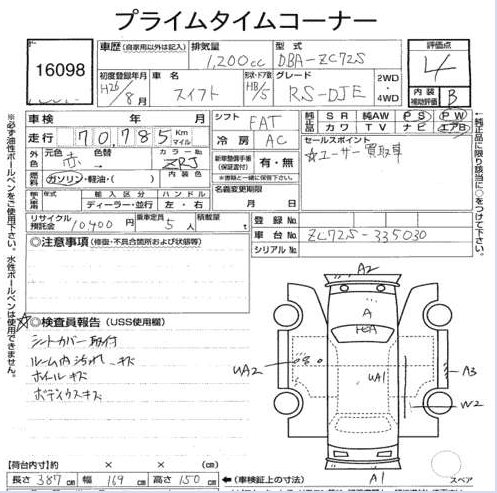 プライムタイムコーナー
16098
車歴 (自家用以外は記入)
排気量 1,200cc
型式 DBA-ZC72S
評価点 4
初度登録年月 H26/8月
車名 スイフト
形状・ドア数 HB/5
グレード RS-DJE
2WD・4WD
内装補助評価 B
車検 年 月
シフト FAT
純正品 SR 純AW PS PW
カワ TV ナビ エアB
走行 70,785 Km マイル
冷房 AC
セールスポイント
☆ユーザー買取車
外色 元色 赤 色替 カラーNo. ZRJ
燃料 ガソリン・軽油・( ) 内装色
新車整備手帳(保証書付) 有・無
(書類と一緒に保管下さい。)
輸入車 輸入区分 ディーラー・並行 ハンドル 左・右
名義変更期限 月 日
リサイクル預託金 10400 円
乗車定員 5 人
積載量 t
登録No.
車台No. ZC72S-335030
シリアルNo.
◎注意事項 (修復・不具合箇所および状態等)
☆◎検査員報告 (USS使用欄)
シートカバー取付
ルーム内汚れ キズ
ホイールキズ
ボディウスキズ
A2
A
UA2
UA1
A3
W2
A1
スペア
【荷台内寸】約 × × (cm)
長さ 387 cm 幅 169 cm 高さ 150 cm
(車検証上の寸法)
※必ず油性ボールペンをご使用下さい。水性ボールペンは使用できません。
純正品に限り該当に○をつけて下さい